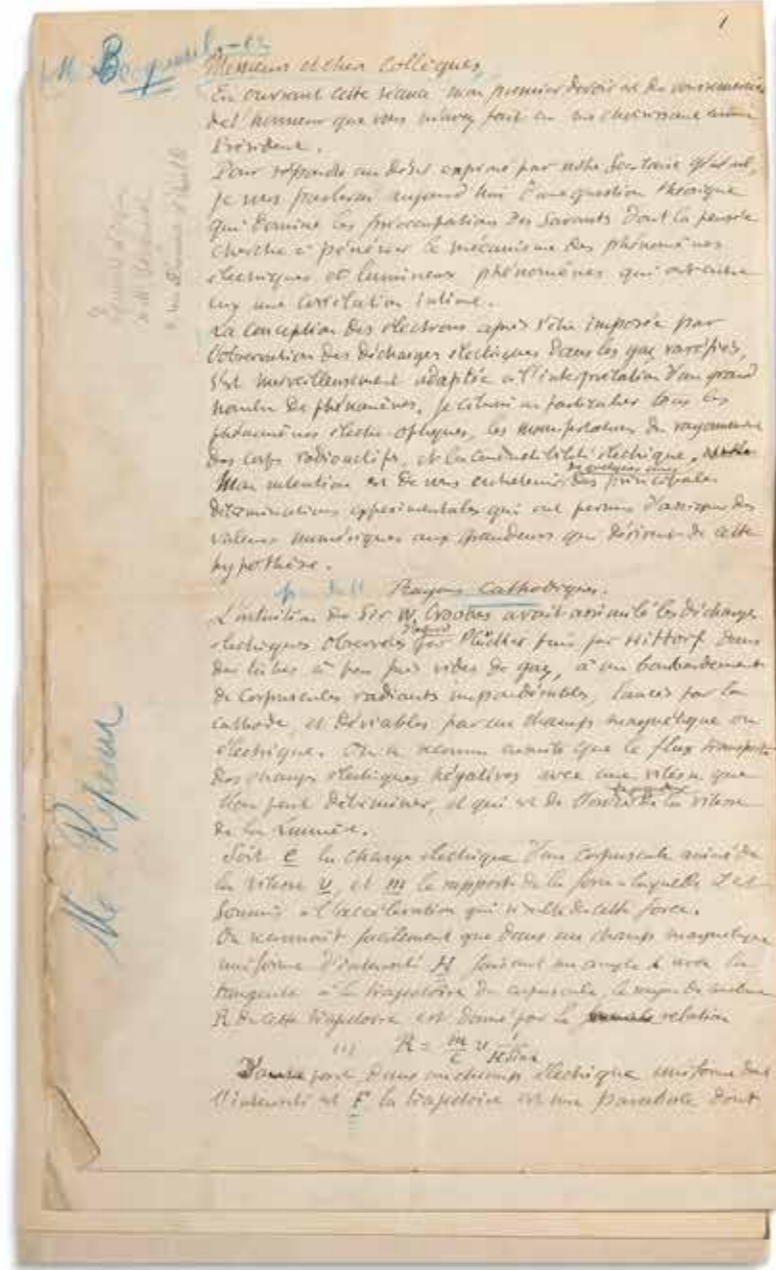 1
M. Becquerel
Messieurs et chers Collègues,
En ouvrant cette séance mon premier devoir est de vous remercier
de l'honneur que vous m'avez fait en me choisissant comme
Président.
Pour répondre au désir exprimé par notre Secrétaire général,
je vous parlerai aujourd'hui d'une question théorique
qui domine les préoccupations des Savants dont la pensée
cherche à pénétrer le mécanisme des phénomènes
électriques et lumineux phénomènes qui ont entre
eux une corrélation intime.
La conception des électrons après s'être imposée par
l'observation des décharges électriques dans les gaz raréfiés,
s'est merveilleusement adaptée à l'interprétation d'un grand
nombre de phénomènes, je citerai en particulier tous les
phénomènes électro-optiques, les manifestations du rayonnement
des corps radioactifs, et la conductibilité électrique.
Mon intention est de vous entretenir de quelques unes des principales
déterminations expérimentales qui ont permis d'assigner des
valeurs numériques aux grandeurs qui dérivent de cette
hypothèse.
Rayons Cathodiques.
L'intuition de Sir W. Crookes avait assimilé les décharges
électriques observées d'abord par Plücker puis par Hittorf dans
des tubes à peu près vides de gaz, à un bombardement
de corpuscules radiants impondérables, lancés par la
cathode, et déviables par un champ magnétique ou
électrique. On a reconnu ensuite que le flux transporte
des charges électriques négatives avec une vitesse que
l'on peut déterminer, et qui est de l'ordre de la vitesse
de la Lumière.
Soit e la charge électrique d'un corpuscule animé de
la vitesse v, et m le rapport de la force à laquelle il est
soumis à l'accélération qui résulte de cette force.
On reconnaît facilement que dans un champ magnétique
uniforme d'intensité H faisant un angle α avec la
tangente à la trajectoire du corpuscule, le rayon de courbure
R de cette trajectoire est donné par la relation
(1) R = m/e v 1/H sin α
D'autre part dans un champ électrique uniforme dont
l'intensité est F la trajectoire est une parabole dont